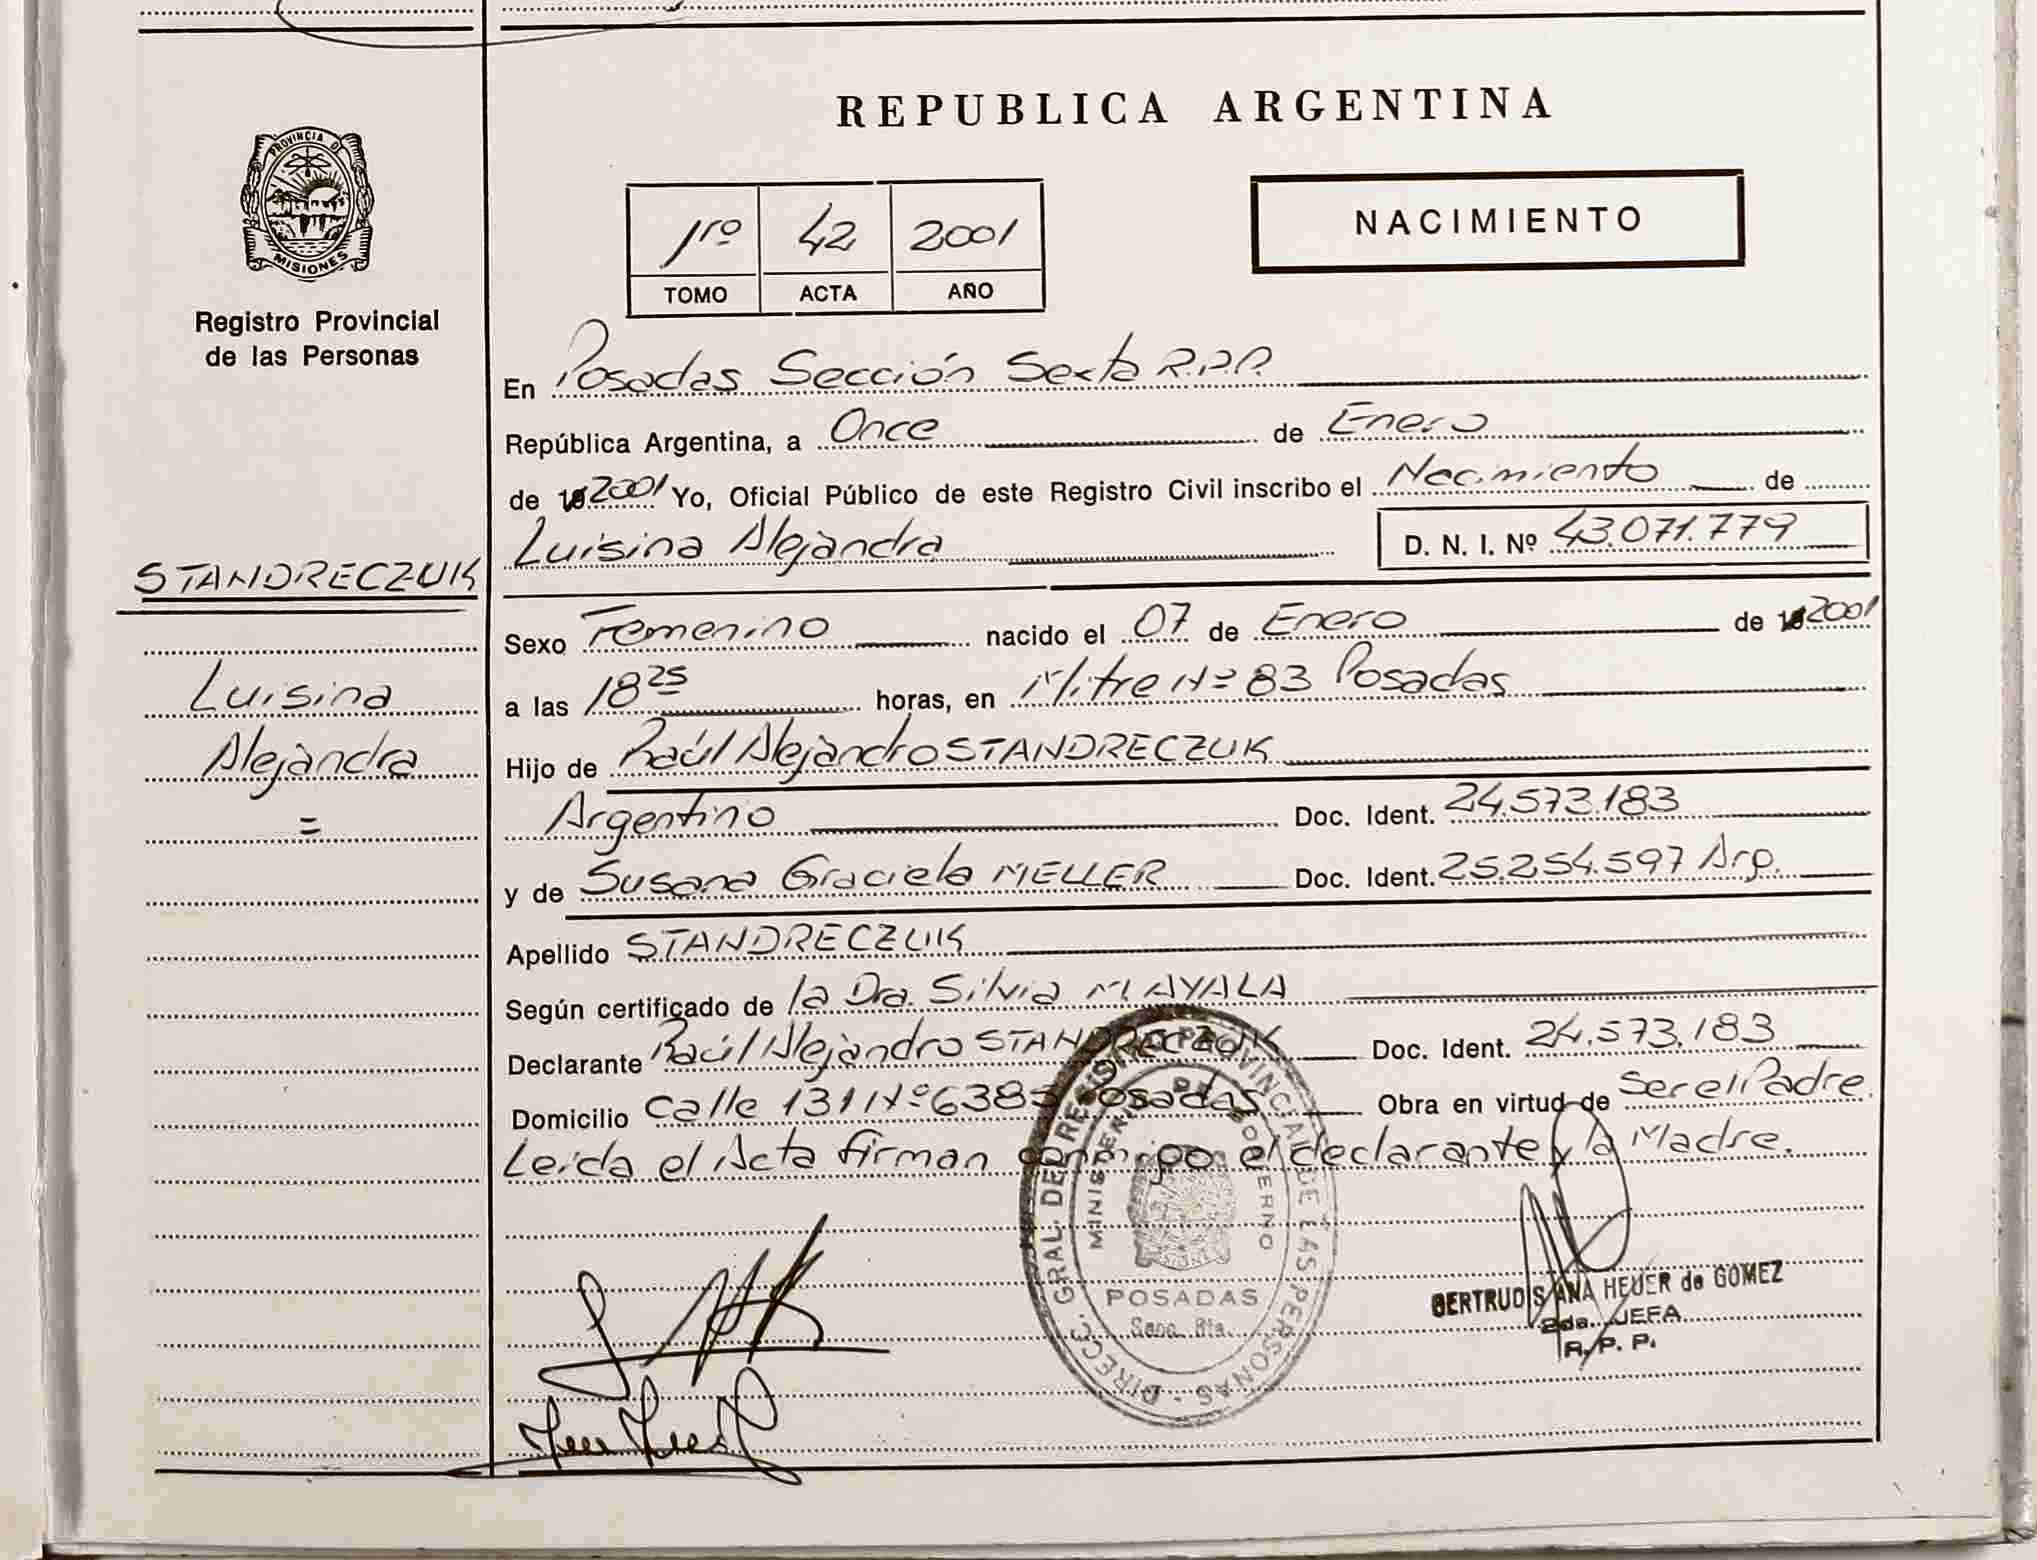 REPUBLICA ARGENTINA
PROVINCIA DE
MISIONES
Registro Provincial
de las Personas
1ro 42 2001
TOMO ACTA AÑO
NACIMIENTO
En Posadas Sección Sexta R.P.P.
República Argentina, a Once de Enero
de 2001 Yo, Oficial Público de este Registro Civil inscribo el Nacimiento de
Luisina Alejandra D. N. I. Nº 43.071.779
STANDRECZUK
Luisina
Alejandra
=
Sexo Femenino nacido el 07 de Enero de 2001
a las 18 25 horas, en Mitre Nº 83 Posadas
Hijo de Raúl Alejandro STANDRECZUK
Argentino Doc. Ident. 24.573.183
y de Susana Graciela MELLER Doc. Ident. 25.254.597 Arg.
Apellido STANDRECZUK
Según certificado de la Dra. Silvia M. AYALA
Declarante Raúl Alejandro STANDRECZUK Doc. Ident. 24.573.183
Domicilio Calle 131 Nº 6383 Posadas Obra en virtud de Ser el Padre.
Leída el Acta firman conmigo el declarante y la Madre.
DIREC. GRAL. DEL REGISTRO PROVINCIAL DE LAS PERSONAS
MINISTERIO DE GOBIERNO
MISIONES
POSADAS
Secc. 6ta.
GERTRUDIS ANA HEUER de GOMEZ
2da. JEFA
R. P. P.